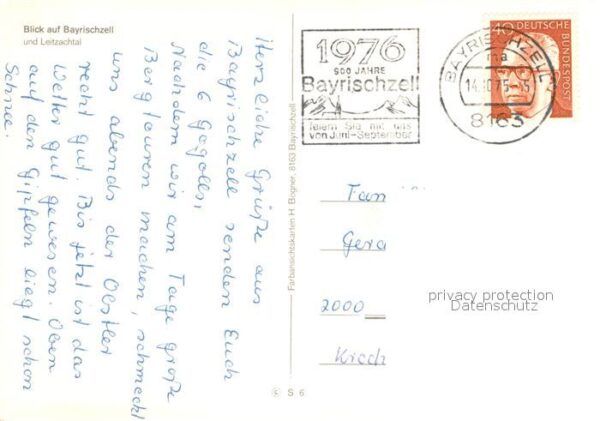 Blick auf Bayrischzell
und Leitzachtal
Herzliche Grüße aus
Bayrischzell senden Euch
die 6 Gogolls,
Nachdem wir am Tage große
Bergtouren machen, schmeckt
uns abends der Obstler
recht gut. Bis jetzt ist das
Wetter gut gewesen. Oben
auf den Gipfeln liegt schon
Schnee.
Farbansichtskarten H. Bogner, 8163 Bayrischzell
© S 6
1976
900 JAHRE
Bayrischzell
feiern Sie mit uns
von Juni-September
40 DEUTSCHE
BUNDESPOST
BAYRISCHZELL
ma
14.10.75-15
8163
Fam
Gera
2000
Kirch
privacy protection
Datenschutz